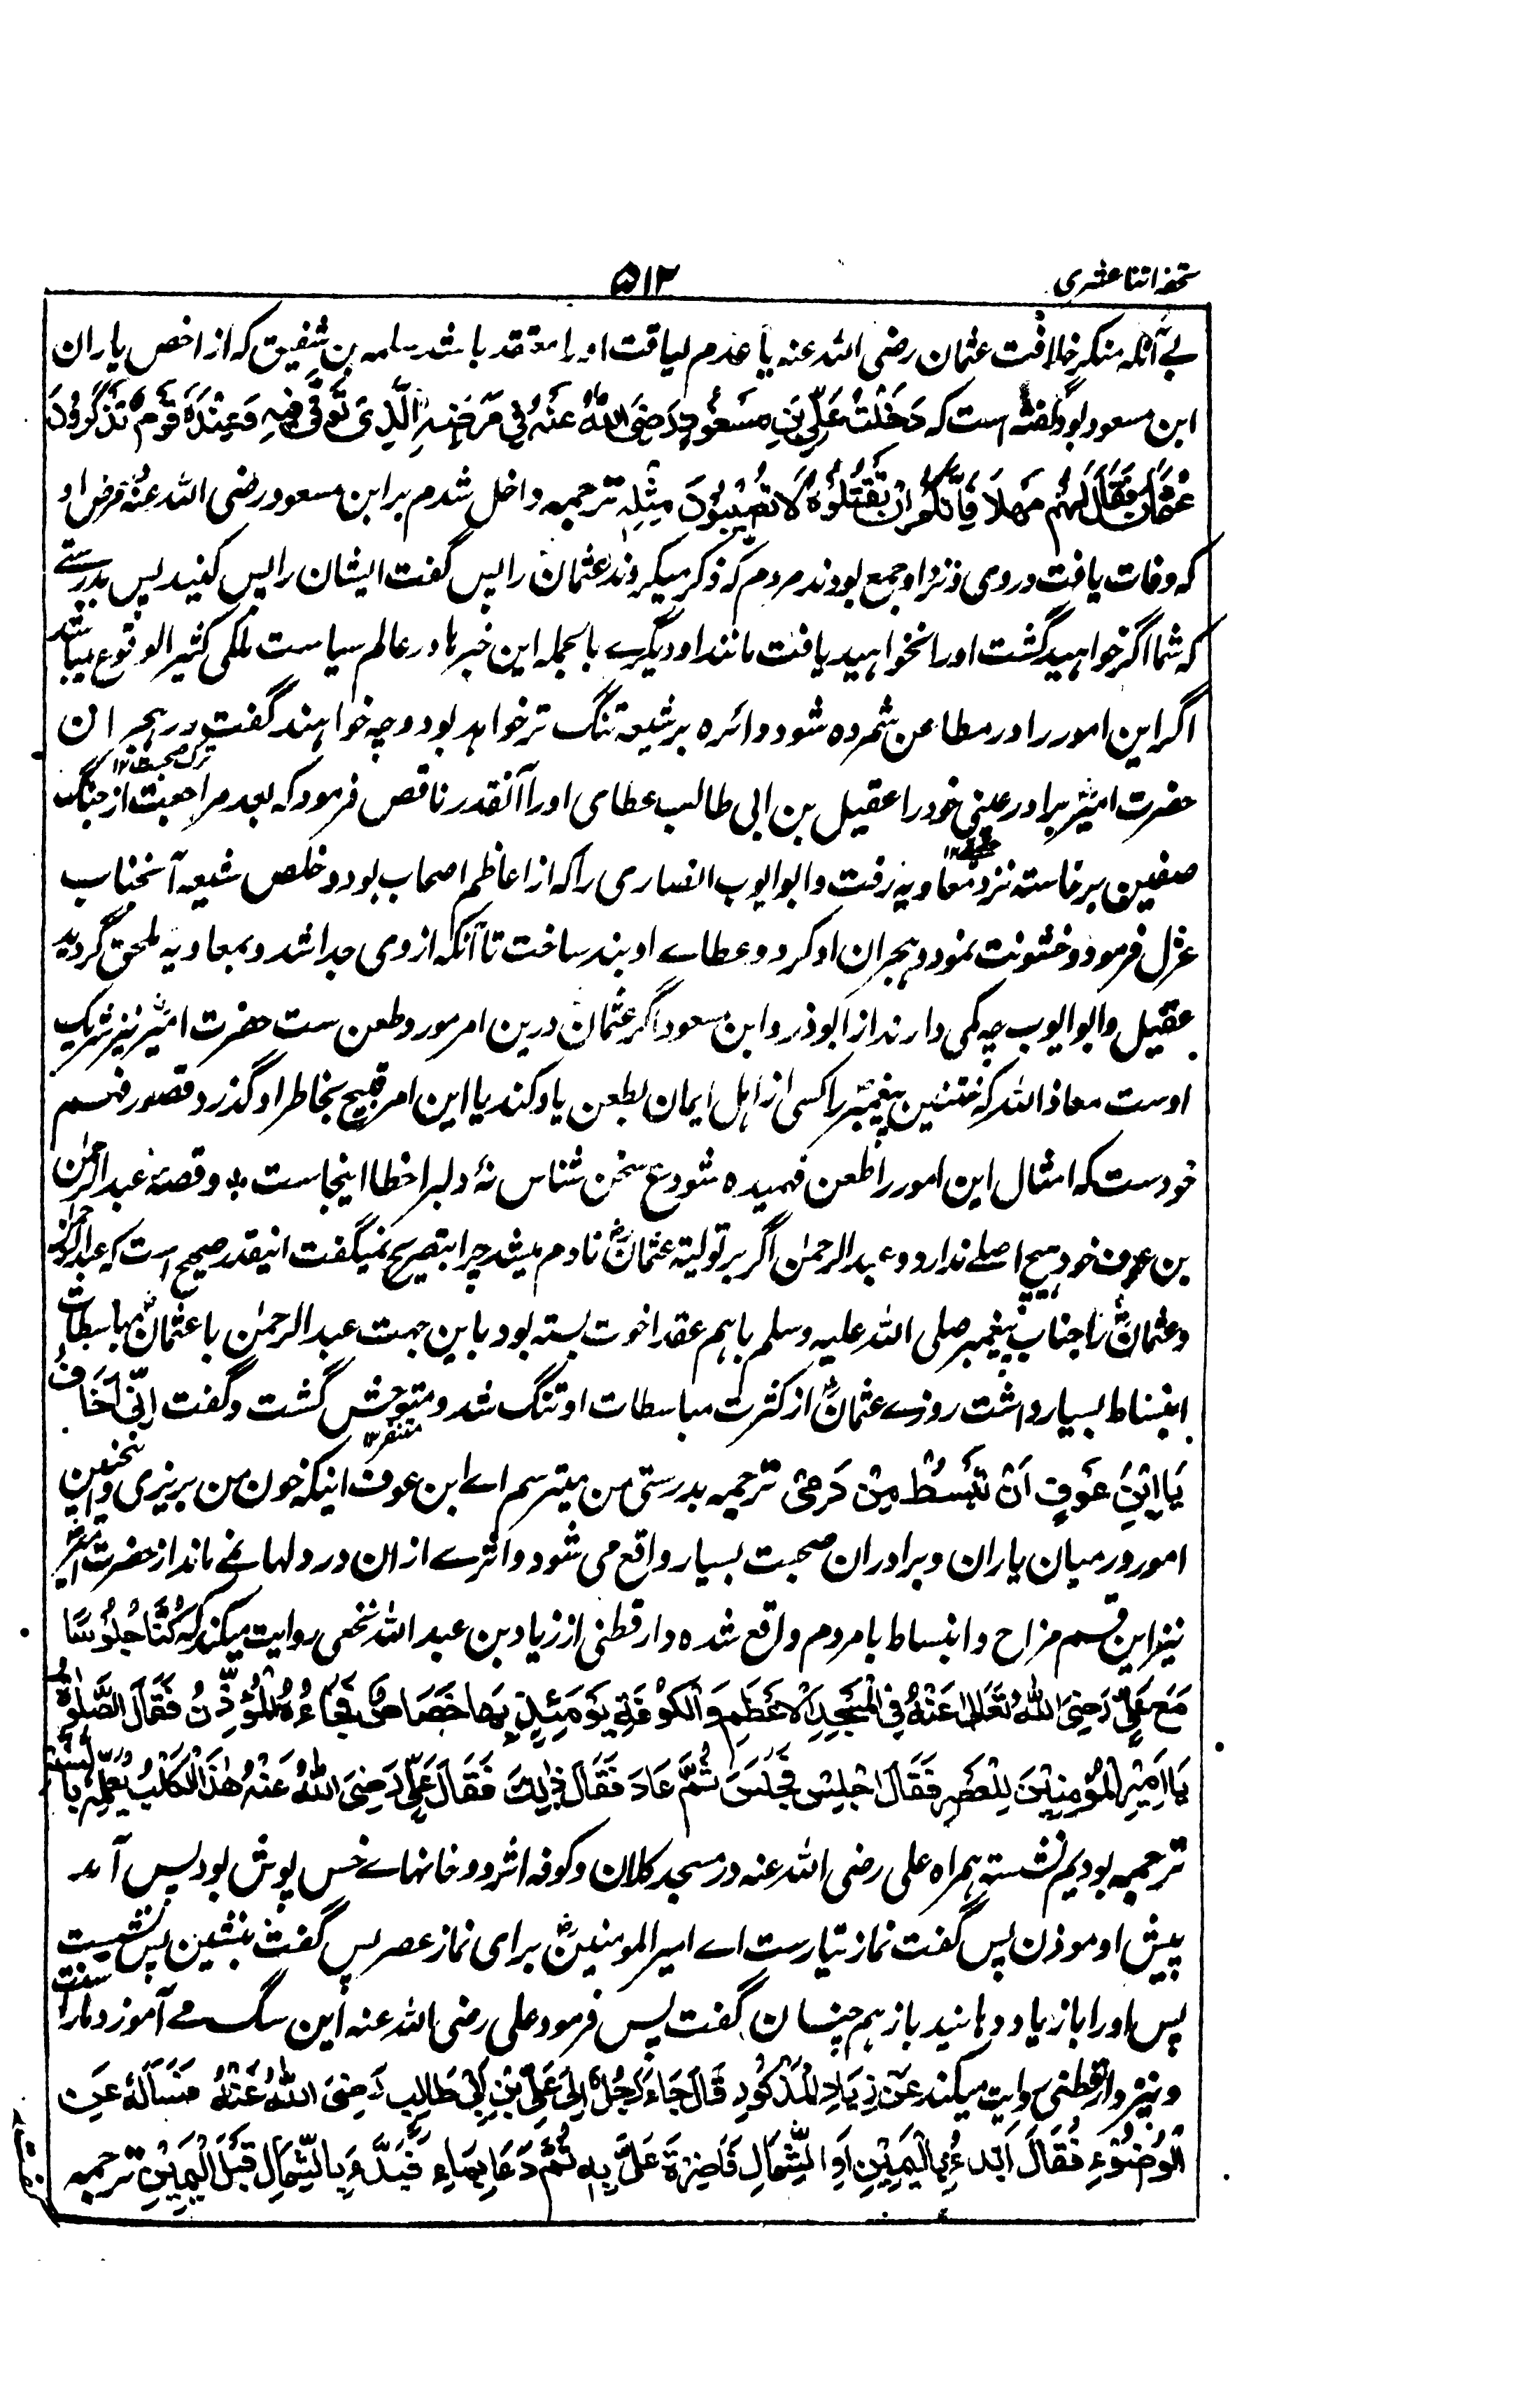 تحفه اثنا عشری
۵۱۲
بے آنکه منکر خلافت عثمان رضی الله عنه یا عدم لیاقت او را معتقد باشد سلمه بن شفیق که از اخص یاران
ابن مسعود بود گفته است که دَخَلْتُ عَلٰی بْنِ مَسْعُوْدٍ رَضِیَ اللهُ عَنْهُ فِیْ مَرَضِهِ الَّذِیْ تُوُفِّیَ فِیْهِ وَعِنْدَهٗ قَوْمٌ تَذْکُرُوْنَ
عُثْمَانَ فَقَالَ لَهُمْ مَهْلًا فَاِنَّکُمْ اِنْ تَقْتُلُوْهُ لَا تُصِیْبُوْنَ مِثْلَهٗ ترجمه داخل شدم بر ابن مسعود رضی الله عنه در مرض او
که وفات یافت در وی و نزد او جمع بودند مردم که ذکر میکردند عثمان را پس گفت ایشان را پس کنید پس بدرستے
که شما اگر خواهید گشت او را نخواهید یافت مانند او دیگرے بالجمله این خبرها در عالم سیاست ملکی کثیر الوقوع میباشد
اگر این امور را در مطاعن شمرده شود دائره بر شیعه تنگ تر خواهد بود و چه خواهند گفت در هجران
ترک صحبت ۱۲
حضرت امیر برادر عینی خود را عقیل بن ابی طالب عطای او را آنقدر ناقص فرمود که بعد مراجعت از جنگ
صفین برخاسته نزد معاویه رفت و ابو ایوب انصاری را که از اعاظم اصحاب بود و خلص شیعه آنجناب
عزل فرمود و خشونت نمود و هجران او کرد و عطاے او بند ساخت تا آنکه از وی جدا شد و بمعاویه ملحق گردید
عقیل و ابو ایوب چه کمی دارند از ابوذر و ابن مسعود اگر عثمان درین امر مورد طعن ست حضرت امیر نیز شریک
اوست معاذ الله که ختنین پیغمبر را کسی از اهل ایمان بطعن یاد کند یا این امر قبیح بخاطر او گذرد قصور فهم
خودست که امثال این امور را طعن فهمیده شود ع سخن شناس نهٔ دلبرا خطا اینجاست ؞ و قصهٔ عبد الرحمٰن
بن عوف خود هیچ اصلے ندارد و عبد الرحمٰن اگر بر تولیته عثمان نادم میشد چرا بتصریح نمیگفت اینقدر صحیح است که عبد الرحمٰن
و عثمان را جناب پیغمبر صلی الله علیه وسلم باهم عقد اخوت بسته بود باین جهت عبد الرحمٰن با عثمان مباسطات
انبساط بسیار داشت روزے عثمان از کثرت مباسطات او تنگ شد و متوحش گشت و گفت اِنِّیْ اَخَافُ
متنفر ۱۲
یَا ابْنَ عَوْفٍ اَنْ تَبْسُطَ مِنْ دَمِیْ ترجمه بدرستی من میترسم اے ابن عوف اینکه خون من بریزی و اینچنین
امور در میان یاران و برادران صحبت بسیار واقع می شود و اثرے از ان در دلها نمے ماند از حضرت امیر
نیز این قسم مزاح و انبساط با مردم واقع شده دارقطنی از زیاد بن عبد الله نخعی روایت میکند که کُنَّا جُلُوْسًا
مَعَ عَلِیٍّ رَضِیَ اللهُ تَعَالٰی عَنْهُ فِی الْمَسْجِدِ الْاَعْظَمِ وَالْکُوْفَةِ یَوْمَئِذٍ بِهَا خَصَاصٌ فَجَاءَهُ الْمُؤَذِّنُ فَقَالَ الصَّلٰوةُ
یَا اَمِیْرَ الْمُؤْمِنِیْنَ لِلْعَصْرِ فَقَالَ اجْلِسْ فَجَلَسَ ثُمَّ عَادَ فَقَالَ ذٰلِکَ فَقَالَ عَلِیٌّ رَضِیَ اللهُ عَنْهُ هٰذَا الْکَلْبُ یُعَلِّمُنَا بِالسُّنَّةِ
ترجمه بودیم نشسته همراه علی رضی الله عنه در مسجد کلان و کوفه خانهاے خس پوش بود پس آمد
پیش او موذن پس گفت نماز تیارست اے امیر المومنین برای نماز عصر پس گفت بنشین پس نشست
پس او را باز یاد دهانید باز همچنان گفت پس فرمود علی رضی الله عنه این سگ مے آموزد مارا سنت
و نیز دارقطنی روایت میکند عَنْ زِیَادِ الْمَذْکُوْرِ قَالَ جَاءَ رَجُلٌ اِلٰی عَلِیِّ بْنِ اَبِیْ طَالِبٍ رَضِیَ اللهُ عَنْهُ فَسَاَلَهٗ عَنِ
الْوُضُوْءِ فَقَالَ اَبْدَءُ بِالْیَمِیْنِ اَوِ الشِّمَالِ فَاَضْرَطَ عَلِیٌّ بِهٖ ثُمَّ دَعَا بِمَاءٍ فَبَدَءَ بِالشِّمَالِ قَبْلَ الْیَمِیْنِ ترجمه